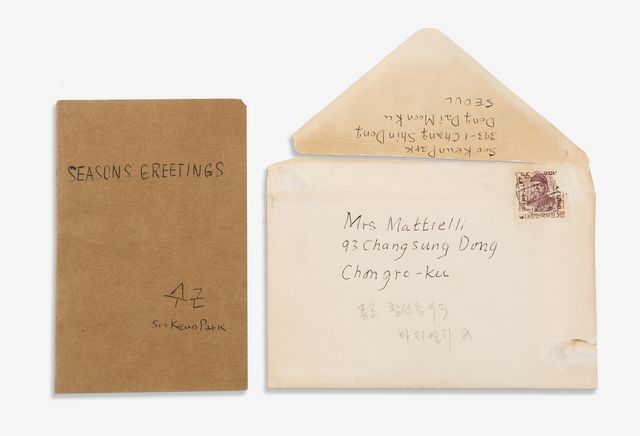 SEASONS GREETINGS
Soo Keun Park
Soo Keun Park
393-1 Chang Shin Dong
Dong Dai Moon Ku
SEOUL
대한민국우표
Mrs. Mattielli
93 Changsung Dong
Chongro-ku
종로 창성동 93
마티엘리